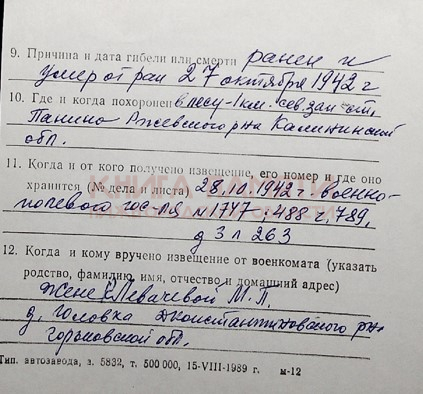 9. Причина и дата гибели или смерти ранен и
умер от ран 27 октября 1942 г
10. Где и когда похоронен в лесу-1км. сев. зап. ст.
Панино Ржевского р-на Калининской
обл.
11. Когда и от кого получено извещение, его номер и где оно
хранится (№ дела и листа) 28.10.1942г. военно-
полевого гос-ля №1747, 488 г, 789,
д 3 л 263
12. Когда и кому вручено извещение от военкомата (указать
родство, фамилию, имя, отчество и домашний адрес)
Жене Клевачевой М.П.
д. Головка Дконстантиновского р-на
Горьковской обл.
Тип. автозавода, з. 5832, т. 500 000, 15-VIII-1989 г. м-12
КНИГА ПАМЯТИ